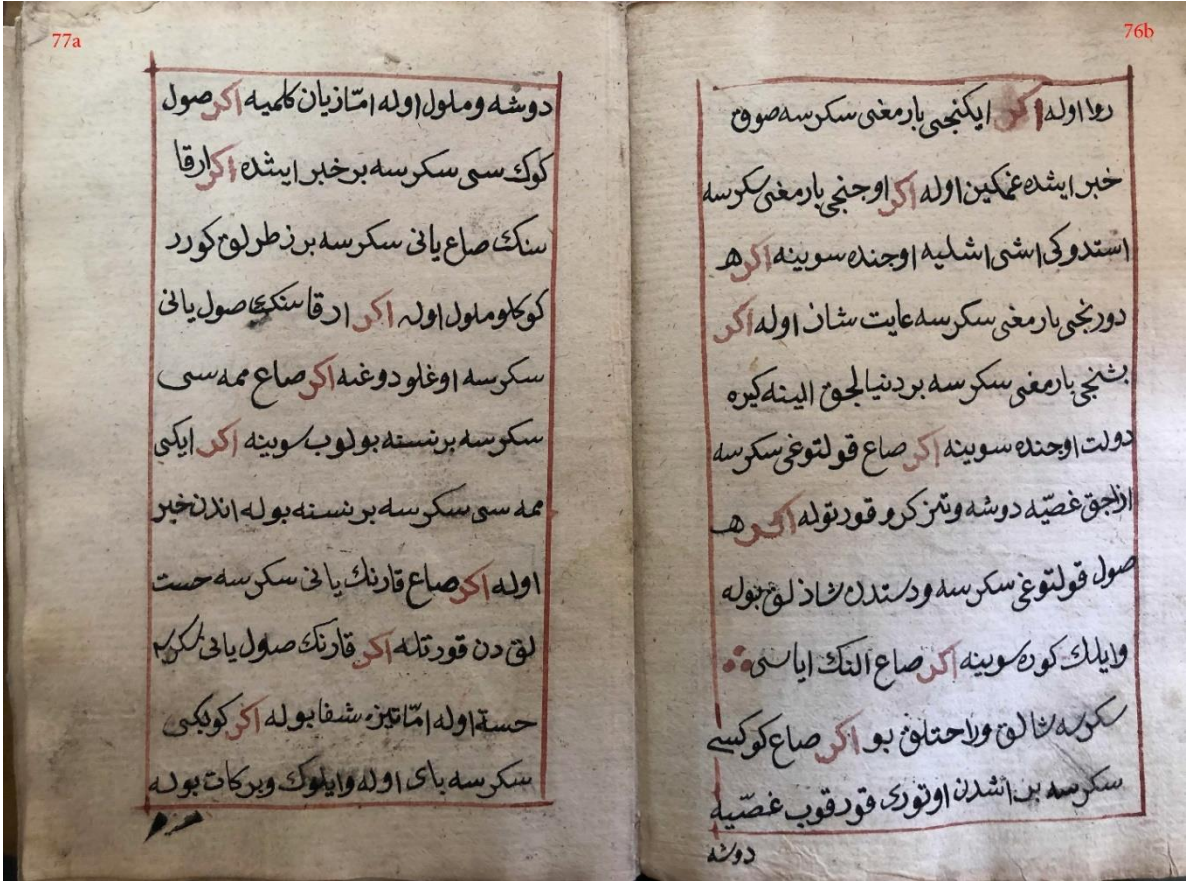 76b
روا اوله اكر ايكنجى بارمغى سكرسه صوق
خبر ايشده غمكين اوله اكر اوجنجى بارمغى سكرسه
استدوكى اشى اشليه اوجنده سوينه اكر
دورنجى بارمغى سكرسه غايت شاذ اوله اكر
بشنجى بارمغى سكرسه بر دنيالجق الينه كيره
دولت اوجنده سوينه اكر صاع قولتوغى سكرسه
ازاجق غصّيه دوشه وتنز كرو قورتوله اكر
صول قولتوغى سكرسه ودستدن شاذلق بوله
وايلك كوره سوينه اكر صاع النك اياسى
سكرسه شالق وراحتلق بو اكر صاع كوكسى
سكرسه بر اشدن اوتورى قورقوب غصّيه
دوشه
77a
دوشه وملول اوله امّا زيان كلميه اكر صول
كوك سى سكرسه بر خبر ايشده اكر ارقا
سنك صاع يانى سكرسه بر زطرلق كورر
كوكلو ملول اوله اكر ارقا سنك صول يانى
سكرسه اوغلو دوغه اكر صاع ممه سى
سكرسه بر نسنه بولوب سوينه اكر ايكى
ممه سى سكرسه بر نسنه بوله اندن خير
اوله اكر صاع قارنك يانى سكرسه حست
لق دن قورتله اكر قارنك صول يانى سكرسه
حسته اوله امّا تيزه شفا بوله اكر كوبكى
سكرسه باى اوله وايلوك وبركات بوله